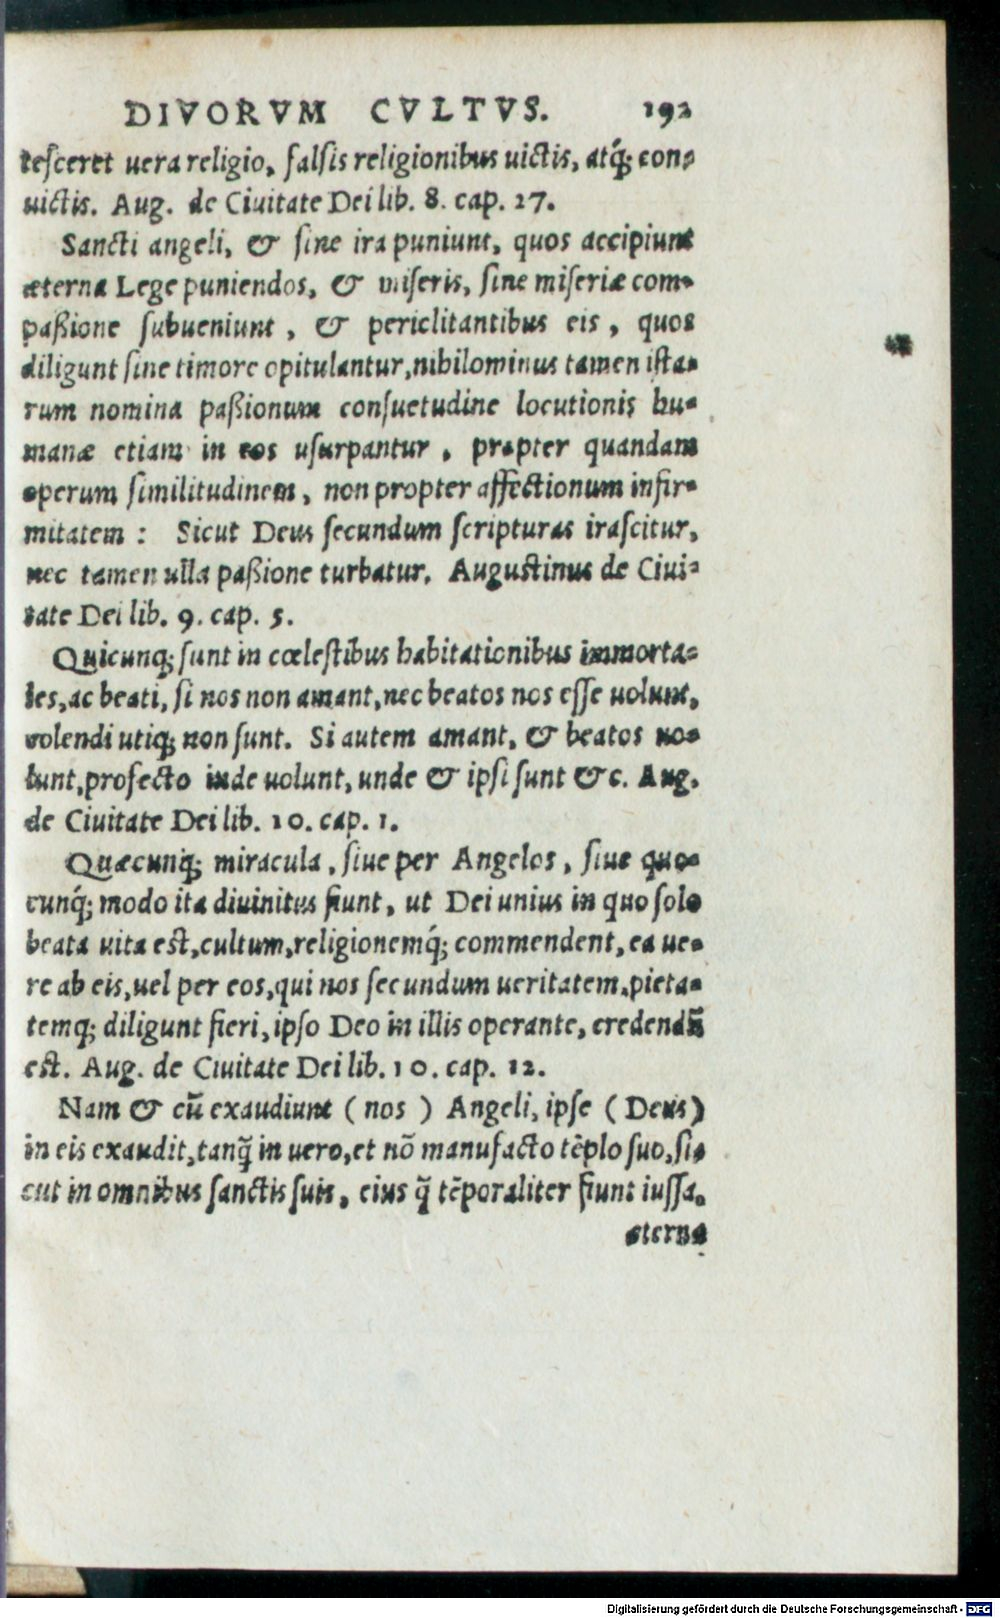 DIVORVM CVLTVS. 192
tesceret uera religio, falsis religionibus uictis, atq́; con-
uictis. Aug. de Ciuitate Dei lib. 8. cap. 17.
Sancti angeli, & sine ira puniunt, quos accipiunt
æterna Lege puniendos, & miseris, sine miseriæ com-
paßione subueniunt, & periclitantibus eis, quos
diligunt sine timore opitulantur, nihilominus tamen ista-
rum nomina paßionum consuetudine locutionis hu-
manæ etiam in eos usurpantur, propter quandam
operum similitudinem, non propter affectionum infir-
mitatem: Sicut Deus secundum scripturas irascitur,
nec tamen ulla paßione turbatur. Augustinus de Ciui-
tate Dei lib. 9. cap. 5.
Quicunq; sunt in cœlestibus habitationibus immorta-
les, ac beati, si nos non amant, nec beatos nos esse uolunt,
colendi utiq; non sunt. Si autem amant, & beatos uo-
lunt, profecto inde uolunt, unde & ipsi sunt &c. Aug.
de Ciuitate Dei lib. 10. cap. 1.
Quæcunq; miracula, siue per Angelos, siue quo-
cunq́; modo ita diuinitus fiunt, ut Dei unius in quo solo
beata uita est, cultum, religionemq́; commendent, ea ue-
re ab eis, uel per eos, qui nos secundum ueritatem, pieta-
temq; diligunt fieri, ipso Deo in illis operante, credendũ
est. Aug. de Ciuitate Dei lib. 10. cap. 12.
Nam & cũ exaudiunt (nos) Angeli, ipse (Deus)
in eis exaudit, tanq̃ in uero, et nõ manufacto tẽplo suo, si-
cut in omnibus sanctis suis, eius q̃ tẽporaliter fiunt iussa,
eterna
Digitalisierung gefördert durch die Deutsche Forschungsgemeinschaft - DFG